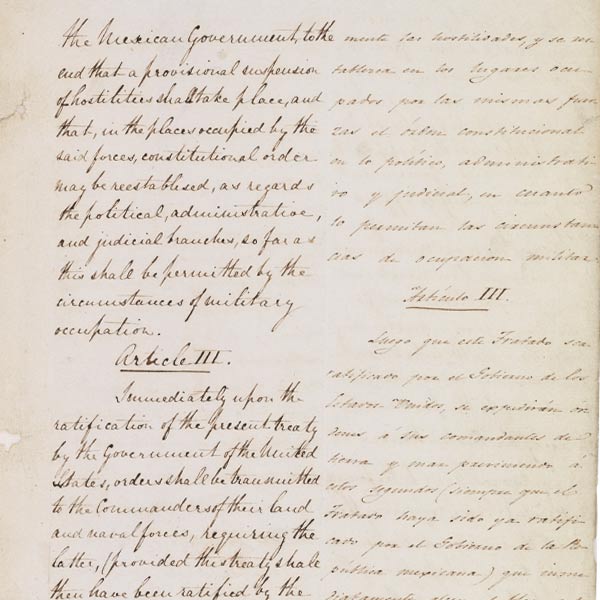 the Mexican Government, to the
end that a provisional suspension
of hostilities shall take place, and
that, in the places occupied by the
said forces, constitutional order
may be reestablised, as regards
the political, administrative,
and judicial branches, so far as
this shall be permitted by the
circumstances of military
occupation.
Article III.
Immediately upon the
ratification of the present treaty
by the Government of the United
States, orders shall be transmitted
to the Commanders of their land
and naval forces, requiring the
latter, (provided this treaty shall
then have been ratified by the
mente las hostilidades, y se res
tablezca en los lugares ocu
pados por las mismas fuer
zas el órden constitucional
en lo político, administrati
vo y judicial, en cuanto
lo permitan las circunstan
cias de ocupacion militar.
Artículo III.
Luego que este Tratado sea
ratificado por el Gobierno de los
Estados Unidos, se expedirán ór
denes á sus comandantes de
tierra y mar previniendo á
estos segundos (siempre que el
Tratado haya sido ya ratifi
cado por el Gobierno de la Re
pública mexicana) que inme